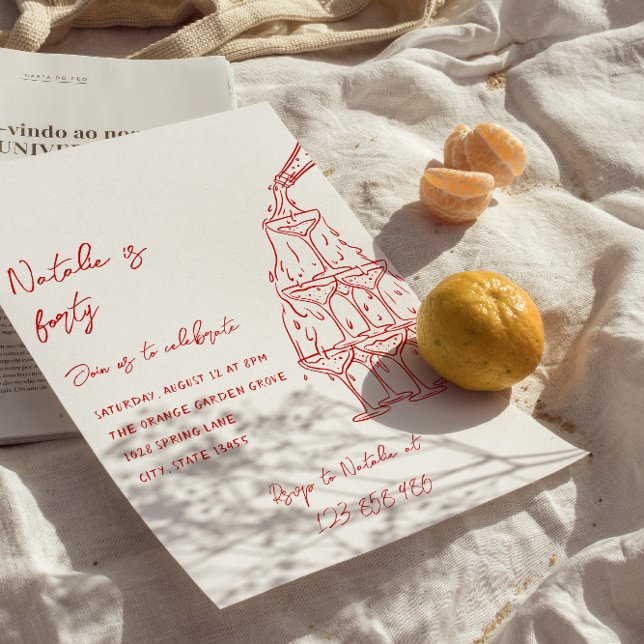 CARTA DO CÉO
-vindo ao no
UNIVER
Natalie is
forty
Join us to celebrate
SATURDAY, AUGUST 12 AT 8PM
THE ORANGE GARDEN GROVE
1028 SPRING LANE
CITY, STATE 13455
Rsvp to Natalie at
123 858 486